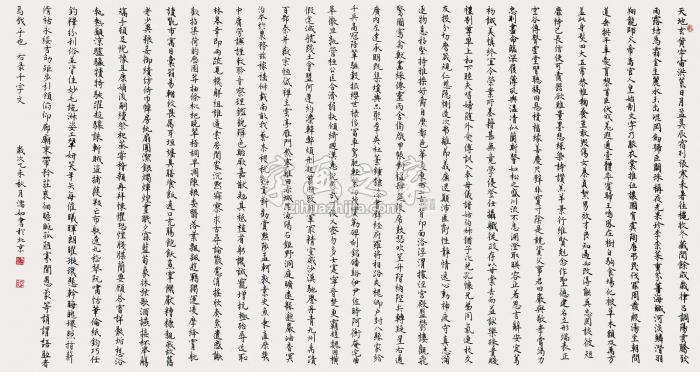 天地玄黄宇宙洪荒日月盈昃辰宿列張寒來暑往秋收冬藏閏餘成歲律呂調陽雲騰致
雨露結為霜金生麗水玉出崑岡劍號巨闕珠稱夜光果珍李柰菜重芥薑海鹹河淡鱗潛羽
翔龍師火帝鳥官人皇始制文字乃服衣裳推位讓國有虞陶唐弔民伐罪周發殷湯坐朝問
道垂拱平章愛育黎首臣伏戎羌遐邇壹體率賓歸王鳴鳳在樹白駒食場化被草木賴及萬方
蓋此身髮四大五常恭惟鞠養豈敢毀傷女慕貞潔男效才良知過必改得能莫忘罔談彼短
靡恃己長信使可覆器欲難量墨悲絲染詩讚羔羊景行維賢剋念作聖德建名立形端表正
空谷傳聲虛堂習聽禍因惡積福緣善慶尺璧非寶寸陰是競資父事君曰嚴與敬孝當竭力
忠則盡命臨深履薄夙興溫凊似蘭斯馨如松之盛川流不息淵澄取映容止若思言辭安定篤
初誠美慎終宜令榮業所基籍甚無竟學優登仕攝職從政存以甘棠去而益詠樂殊貴賤
禮別尊卑上和下睦夫唱婦隨外受傅訓入奉母儀諸姑伯叔猶子比兒孔懷兄弟同氣連枝交
友投分切磨箴規仁慈隱惻造次弗離節義廉退顛沛匪虧性靜情逸心動神疲守真志滿
逐物意移堅持雅操好爵自縻都邑華夏東西二京背邙面洛浮渭據涇宮殿盤鬱樓觀飛
驚圖寫禽獸畫綵仙靈丙舍傍啟甲帳對楹肆筵設席鼓瑟吹笙升階納陛弁轉疑星右通
廣內左達承明既集墳典亦聚群英杜稾鍾隸漆書壁經府羅將相路俠槐卿戶封八縣家給
千兵高冠陪輦驅轂振纓世祿侈富車駕肥輕策功茂實勒碑刻銘磻溪伊尹佐時阿衡奄宅曲
阜微旦孰營桓公匡合濟弱扶傾綺迴漢惠說感武丁俊乂密勿多士寔寧晉楚更霸趙魏困橫
假途滅虢踐土會盟何遵約法韓弊煩刑起翦頗牧用軍最精宣威沙漠馳譽丹青九州禹跡
百郡秦并嶽宗恆岱禪主云亭雁門紫塞雞田赤城昆池碣石鉅野洞庭曠遠綿邈巖岫杳冥
治本於農務茲稼穡俶載南畝我藝黍稷稅熟貢新勸賞黜陟孟軻敦素史魚秉直庶幾
中庸勞謙謹敕聆音察理鑑貌辨色貽厥嘉猷勉其祗植省躬譏誡寵增抗極殆辱近恥
林皋幸即兩疏見機解組誰逼索居閒處沉默寂寥求古尋論散慮逍遙欣奏累遣慼謝
歡招渠荷的歷園莽抽條枇杷晚翠梧桐早凋陳根委翳落葉飄颻遊鵾獨運凌摩絳霄耽
讀翫市寓目囊箱易輶攸畏屬耳垣牆具膳餐飯適口充腸飽飫烹宰飢厭糟糠親戚故舊
老少異糧妾御績紡侍巾帷房紈扇圓潔銀燭煒煌晝眠夕寐藍筍象床弦歌酒讌接杯舉觴
矯手頓足悅豫且康嫡後嗣續祭祀蒸嘗稽顙再拜悚懼恐惶牋牒簡要顧答審詳骸垢想浴
執熱願涼驢騾犢特駭躍超驤誅斬賊盜捕獲叛亡布射遼丸嵇琴阮嘯恬筆倫紙鈞巧任
釣釋紛利俗並皆佳妙毛施淑姿工顰妍笑年矢每催曦暉朗曜璇璣懸斡晦魄環照指薪
修祜永綏吉劭矩步引領俯仰廊廟束帶矜莊徘徊瞻眺孤陋寡聞愚蒙等誚謂語助者
焉哉乎也 右录千字文
歲次己未秋月 書於北京
zihuazhijia.com